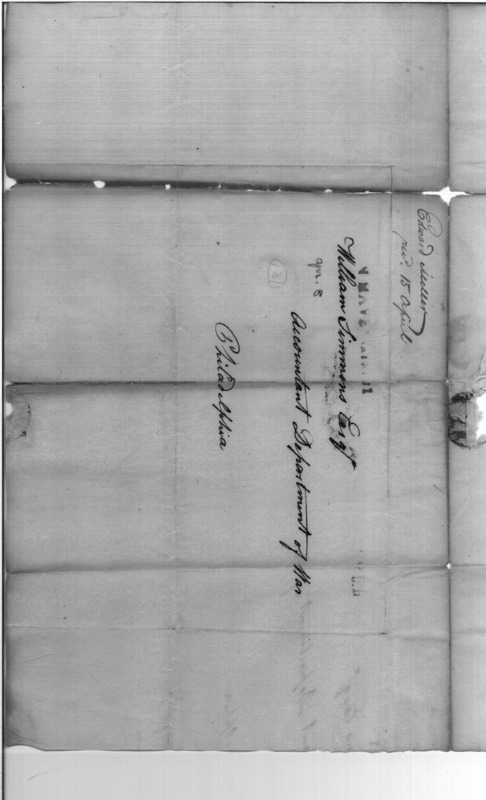 Edward Miller
recd. 15 April
William Simmons Esqr
apr. 8
Accountant Department of War
Philadelphia